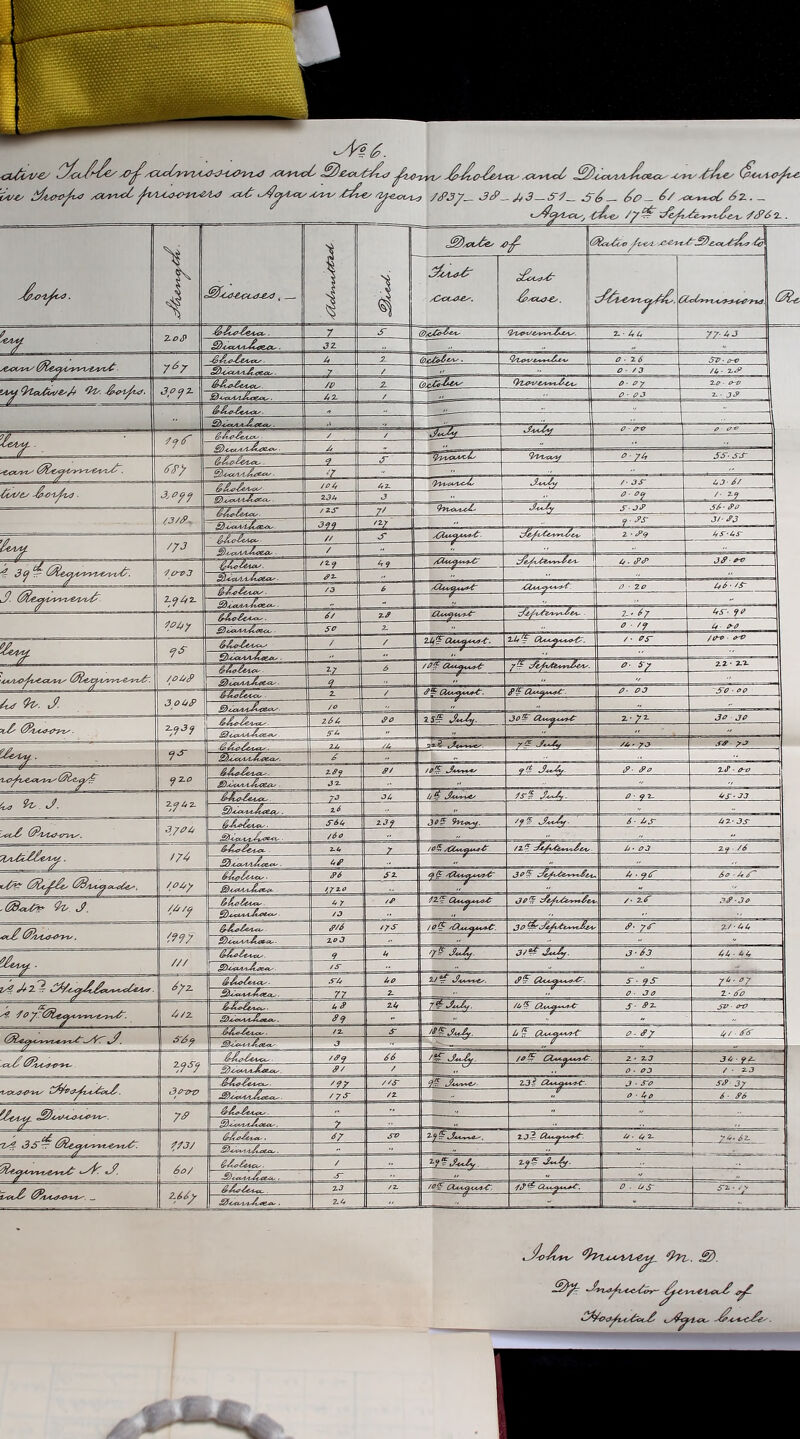 No 6.
ative Table of admissions and Deaths from Cholera and Diarrhœa in the Europe
ive Troops and prisoners at Agra in the years 1837_ 38_43_51_ 56_60_61 and 62._
Agra, the 17th September 1862.
Date of Ratio per cent Deaths to
Corps. Strength. Diseases._ Admitted Died. First case. Last Case. Strength. Admissions.
lery 208 Cholera. 7 5 October November. 2.44 77.43
Diarrhœa. 32 " " " " "
ean Regiment. 767 Cholera. 4 2 October. November 0.26 50.00
Diarrhœa. 7 1 " " 0.13 14.28
ery Native & N. Corps. 3.092 Cholera. 10 2 October November 0.07 20.00
Diarrhœa. 42 1 " " 0.03 2.38
Cholera. " " " " " "
Diarrhœa. " " " " " "
llery. 196 Cholera. 1 1 July July 0.00 0.00
Diarrhœa 4 " " " " "
ean Regiment. 687 Cholera. 9 5 March May 0.74 55.55
Diarrhœa. 17 " " " " "
tive Corps. 3,099 Cholera. 104 42 March July 1.35 43.61
Diarrhœa. 234 3 " " 0.09 1.29
1318 Cholera. 125 71 March July 5.38 56.80
Diarrhœa. 399 127 " " 9.35 31.83
llery 173 Cholera. 11 5 August. September 2.89 45.45
Diarrhœa. 1 " " " " "
39th Regiment. 1003 Cholera. 129 49 August September 4.88 38.00
Diarrhœa. 82 " " " " "
I. Regiment 2,942 Cholera. 13 6 August August. 0.20 46.15
Diarrhœa. " " " " " "
1047 Cholera. 61 28 August September. 2.67 45.90
Diarrhœa. 50 2 " " 0.19 4.00
llery 95 Cholera 1 1 24th August. 24th August. 1.05 100.00
Diarrhœa. " " " " " "
uropean Regiment. 1,048 Cholera 27 6 10th August 7th September. 0.57 22.22
Diarrhœa. 9 " " " " "
ps N. I. 3,048 Cholera. 2 1 8th August. 8th August. 0.03 50.00
Diarrhœa. 10 " " " " "
al Prison. 2,939 Cholera. 264 80 25th July. 30th August 2.72 30.30
Diarrhœa. 54 " " " " "
llery. 95 Cholera. 24 14 22d June. 7th July 14.73 58.73
Diarrhœa. 6 " " " " "
ropean Regt 920 Cholera. 289 81 10th June 9th July. 8.80 28.00
Diarrhœa. 32 " " " " "
ps N. I. 2,942 Cholera. 73 34 4th June 15th July. 0.92 45.33
Diarrhœa. 26 " " " " "
ral Prison. 3,704 Cholera. 564 239 30th May. 19th July. 6.45 42.35
Diarrhœa 160 " " " " "
Artillery. 174 Cholera 24 7 10th August 12th September. 4.03 29.16
Diarrhœa. 48 " " " " "
atn Rifle Brigade. 1,047 Cholera. 86 52 9th August 30th September 4.96 60.46
Diarrhœa 1,720 " " " " "
Batn N. I. 1,419 Cholera. 47 18 12th August 30th September 1.26 38.30
Diarrhœa. 13 " " " " "
al Prison. 1,997 Cholera 816 175 10th August. 30th September 8.76 21.44
Diarrhœa. 203 " " " " "
llery. 111 Cholera. 9 4 17th July. 31st July. 3.63 44.44
Diarrhœa. 15 " " " " "
42d Highlanders 672 Cholera. 54 40 21st June. 8th August. 5.95 74.07
Diarrhœa. 77 2 " " 0.30 2.60
107th Regiment. 412 Cholera. 48 24 7th July. 14th August 5.82 50.00
Diarrhœa. 89 " " " " "
Regiment N. I. 569 Cholera. 12 5 18th July. 4th August 0.87 41.66
Diarrhœa. 3 " " " " "
al Prison 2,959 Cholera. 189 66 1st July 10th August. 2.23 34.92
Diarrhœa. 81 1 " " 0.03 1.23
rason Hospital. 3,000 Cholera. 197 115 9th June 23d August. 3.50 58.37
Diarrhœa. 175 12 " " 0.40 6.86
llery Division. 78 Cholera " " " " " "
Diarrhœa. 7 " " " " "
35th Regiment. 1,131 Cholera. 67 50 29th June. 23d August. 4.42 74.62
Diarrhœa. " " " " " "
Regiment N. I. 601 Cholera. 1 " 29th July. 29th July. " "
Diarrhœa. 5 " " " " "
ral Prison._ 2,667 Cholera 23 12 10th August. 18th August. 0.45 52.17
Diarrhœa. 24 " " " " "
John Murray M. D.
Dy. Inspector General of
Hospital Agra Circle.